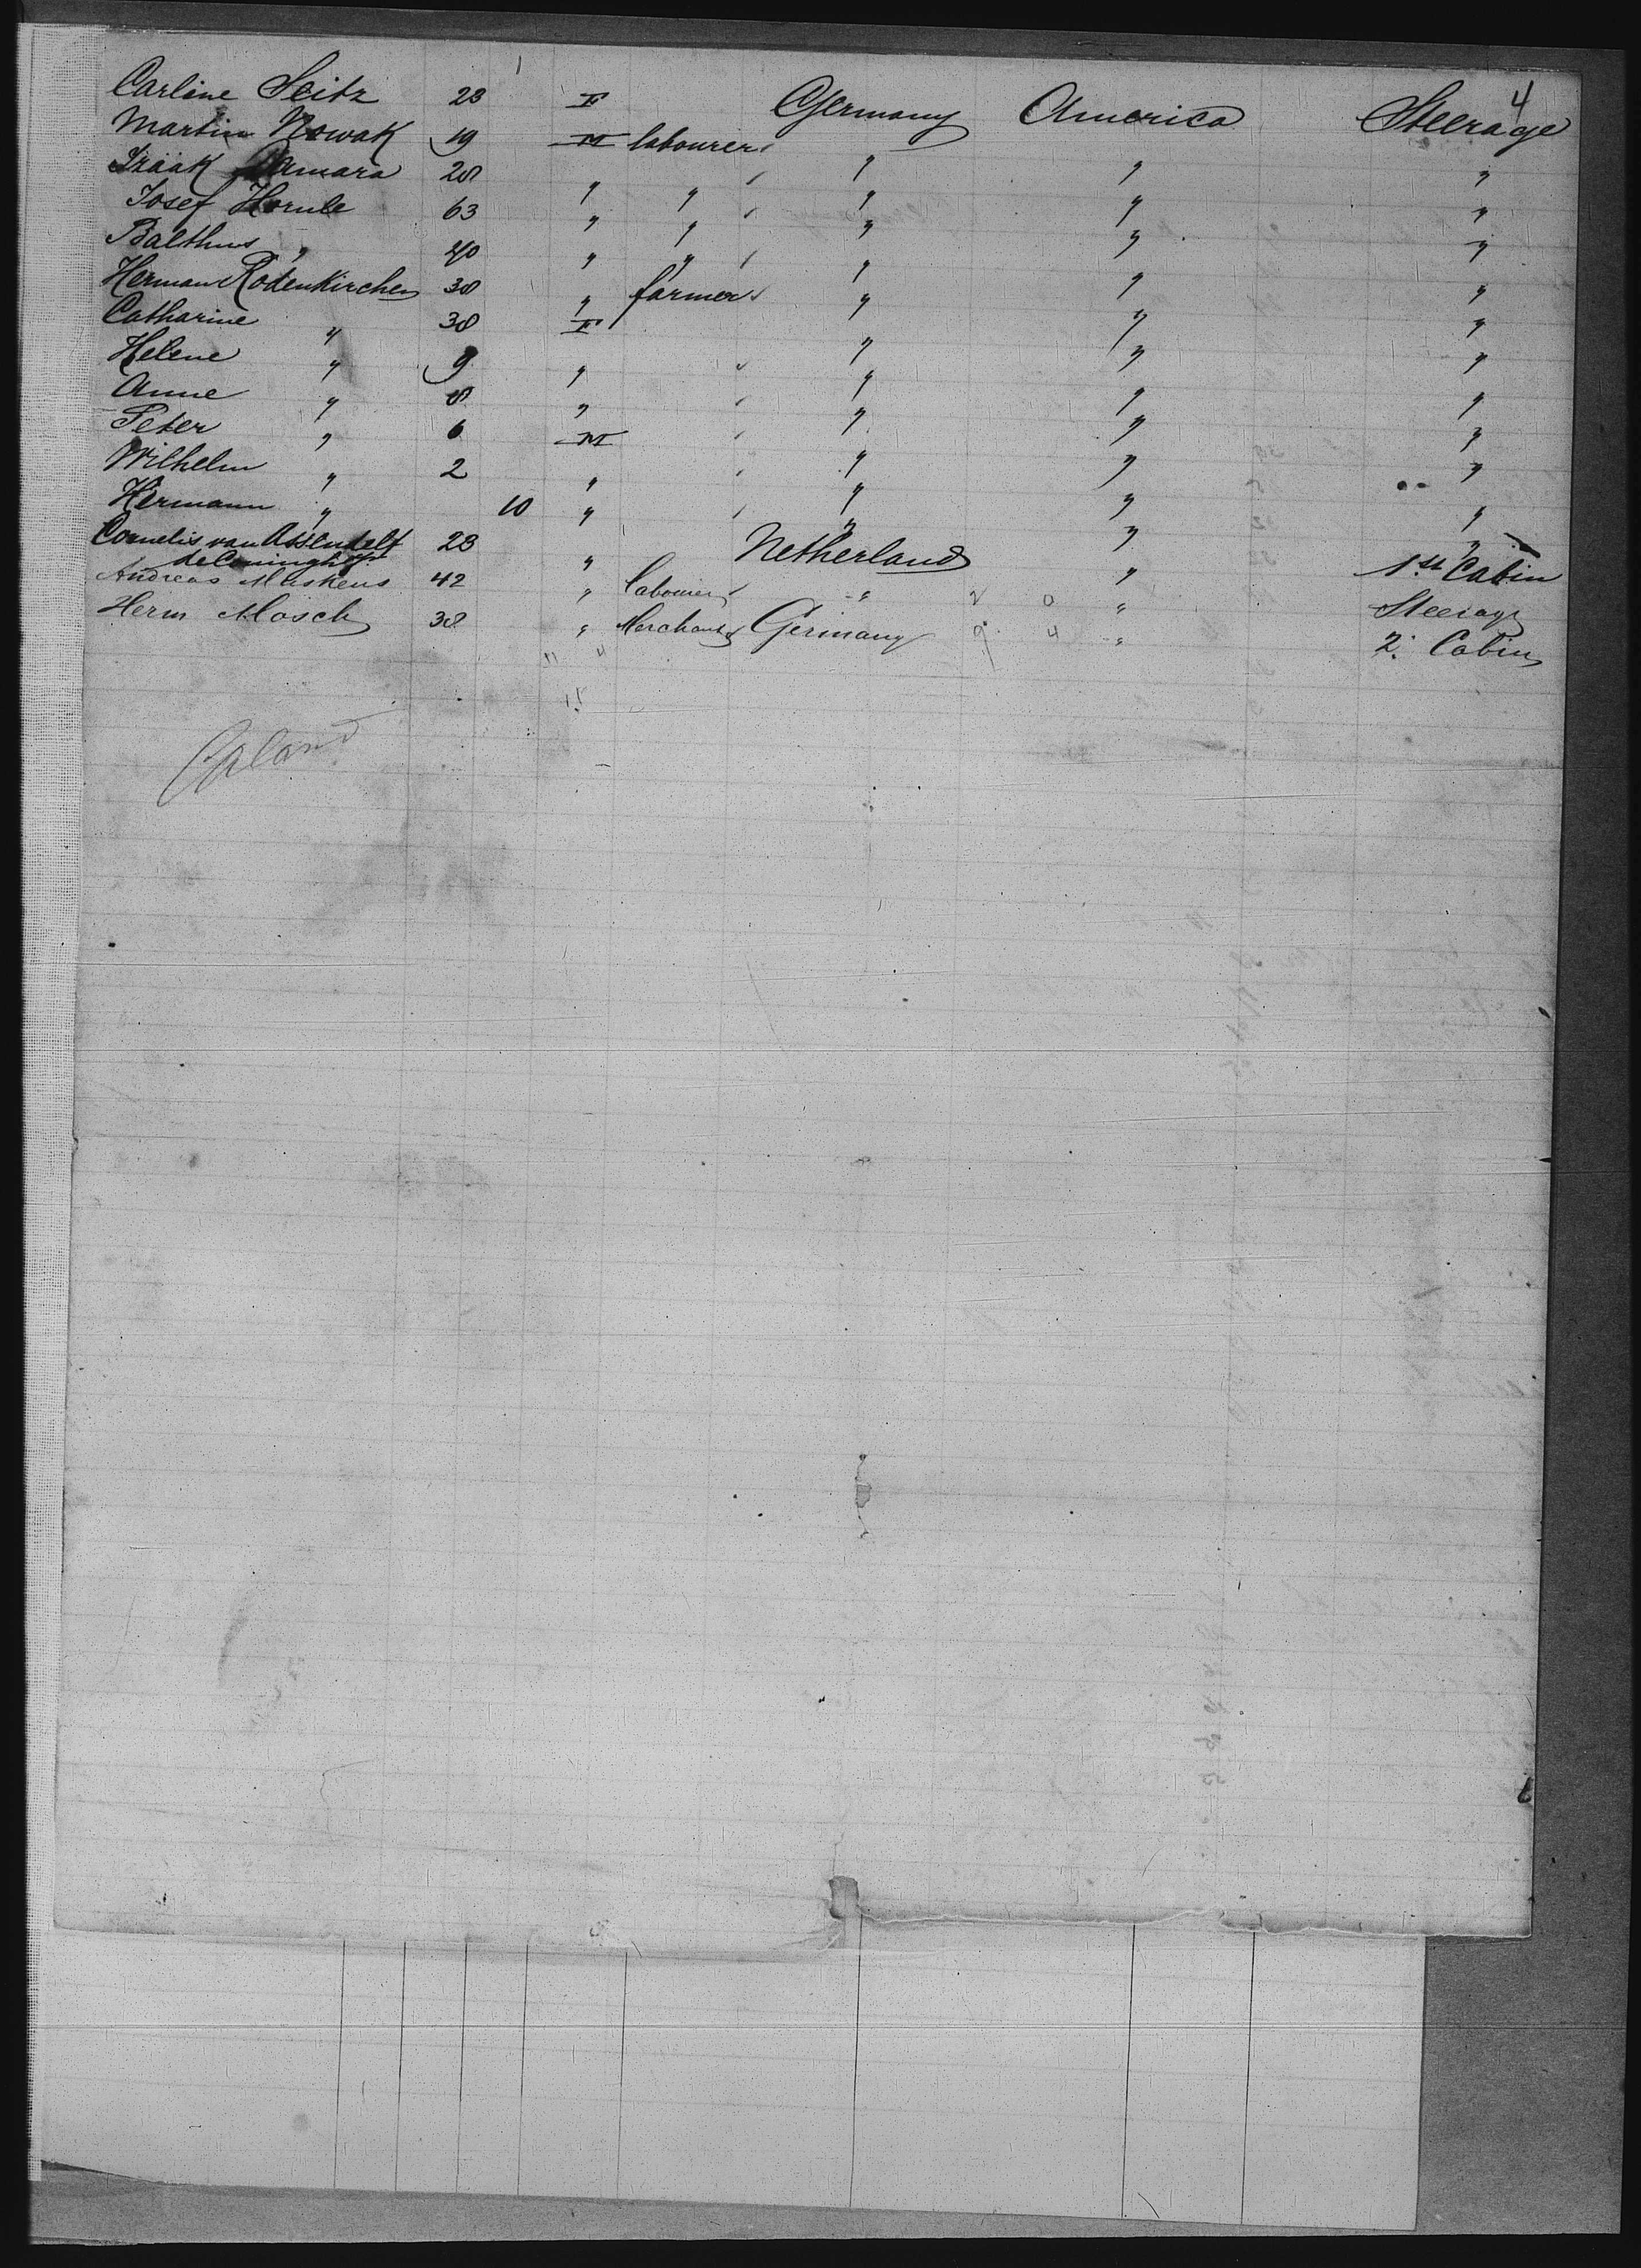 4
Carline Seitz 23 F Germany America Steerage
Martin Nowak 19 M labourer
Isäak Amara 28 " " " " "
Josef Hornle 63 " " " " "
Balthus " 40 " " " " "
Herman Rodenkirchen 38 " farmer " " "
Catharine " 38 F " " "
Helene " 9 " " " "
Anne " 8 " " " "
Peter " 6 M " " "
Wilhelm " 2 " " " "
Hermann " 10 " " " "
Cornelis van Assendelft 23 " Netherland " 1st Cabin
de Coningh
Andreas Maskens 42 " labourer " " Steerage
Herm Mosch 38 " Merchant Germany " 2. Cabin
11 4
15